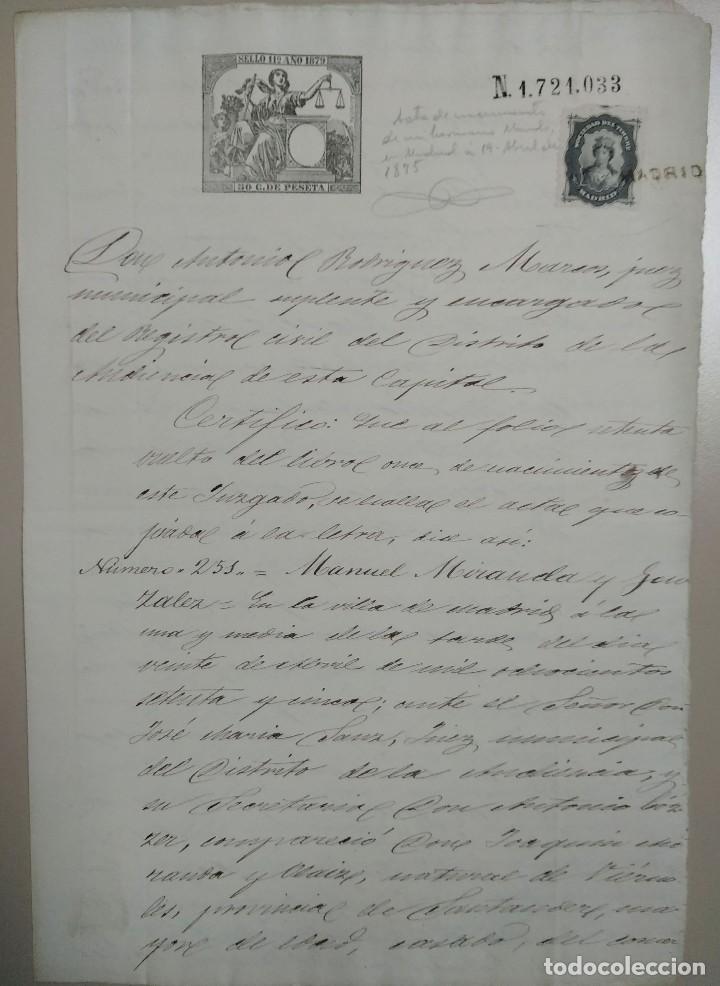 SELLO 11º AÑO 1879
50 C. DE PESETA
N. 1.721.033
Acta de nacimiento
de un hermano
en Madrid a 19 Abril de
1875
SOCIEDAD DEL TIMBRE
MADRID
MADRID
Don Antonio Rodriguez Marcos, juez
municipal suplente y encargado
del Registro civil del Distrito de la
Audiencia de esta Capital.
Certifico: Que al folio setenta
vuelto del libro once de nacimientos de
este Juzgado, se halla el acta que co-
piada á la letra, dice asi:
Número 253 = Manuel Miranda y Gon
zalez = En la villa de Madrid á la
una y media de la tarde del dia
veinte de Abril de mil ochocientos
setenta y cinco; ante el Señor Don
José Maria Sanz, Juez municipal
del Distrito de la Audiencia, y
su Secretario Don Antonio
compareció Don Joaquin Mi
randa y natural de Viérno
les, provincia de Santander, ma
yor de edad, casado, del comer
todocoleccion.net